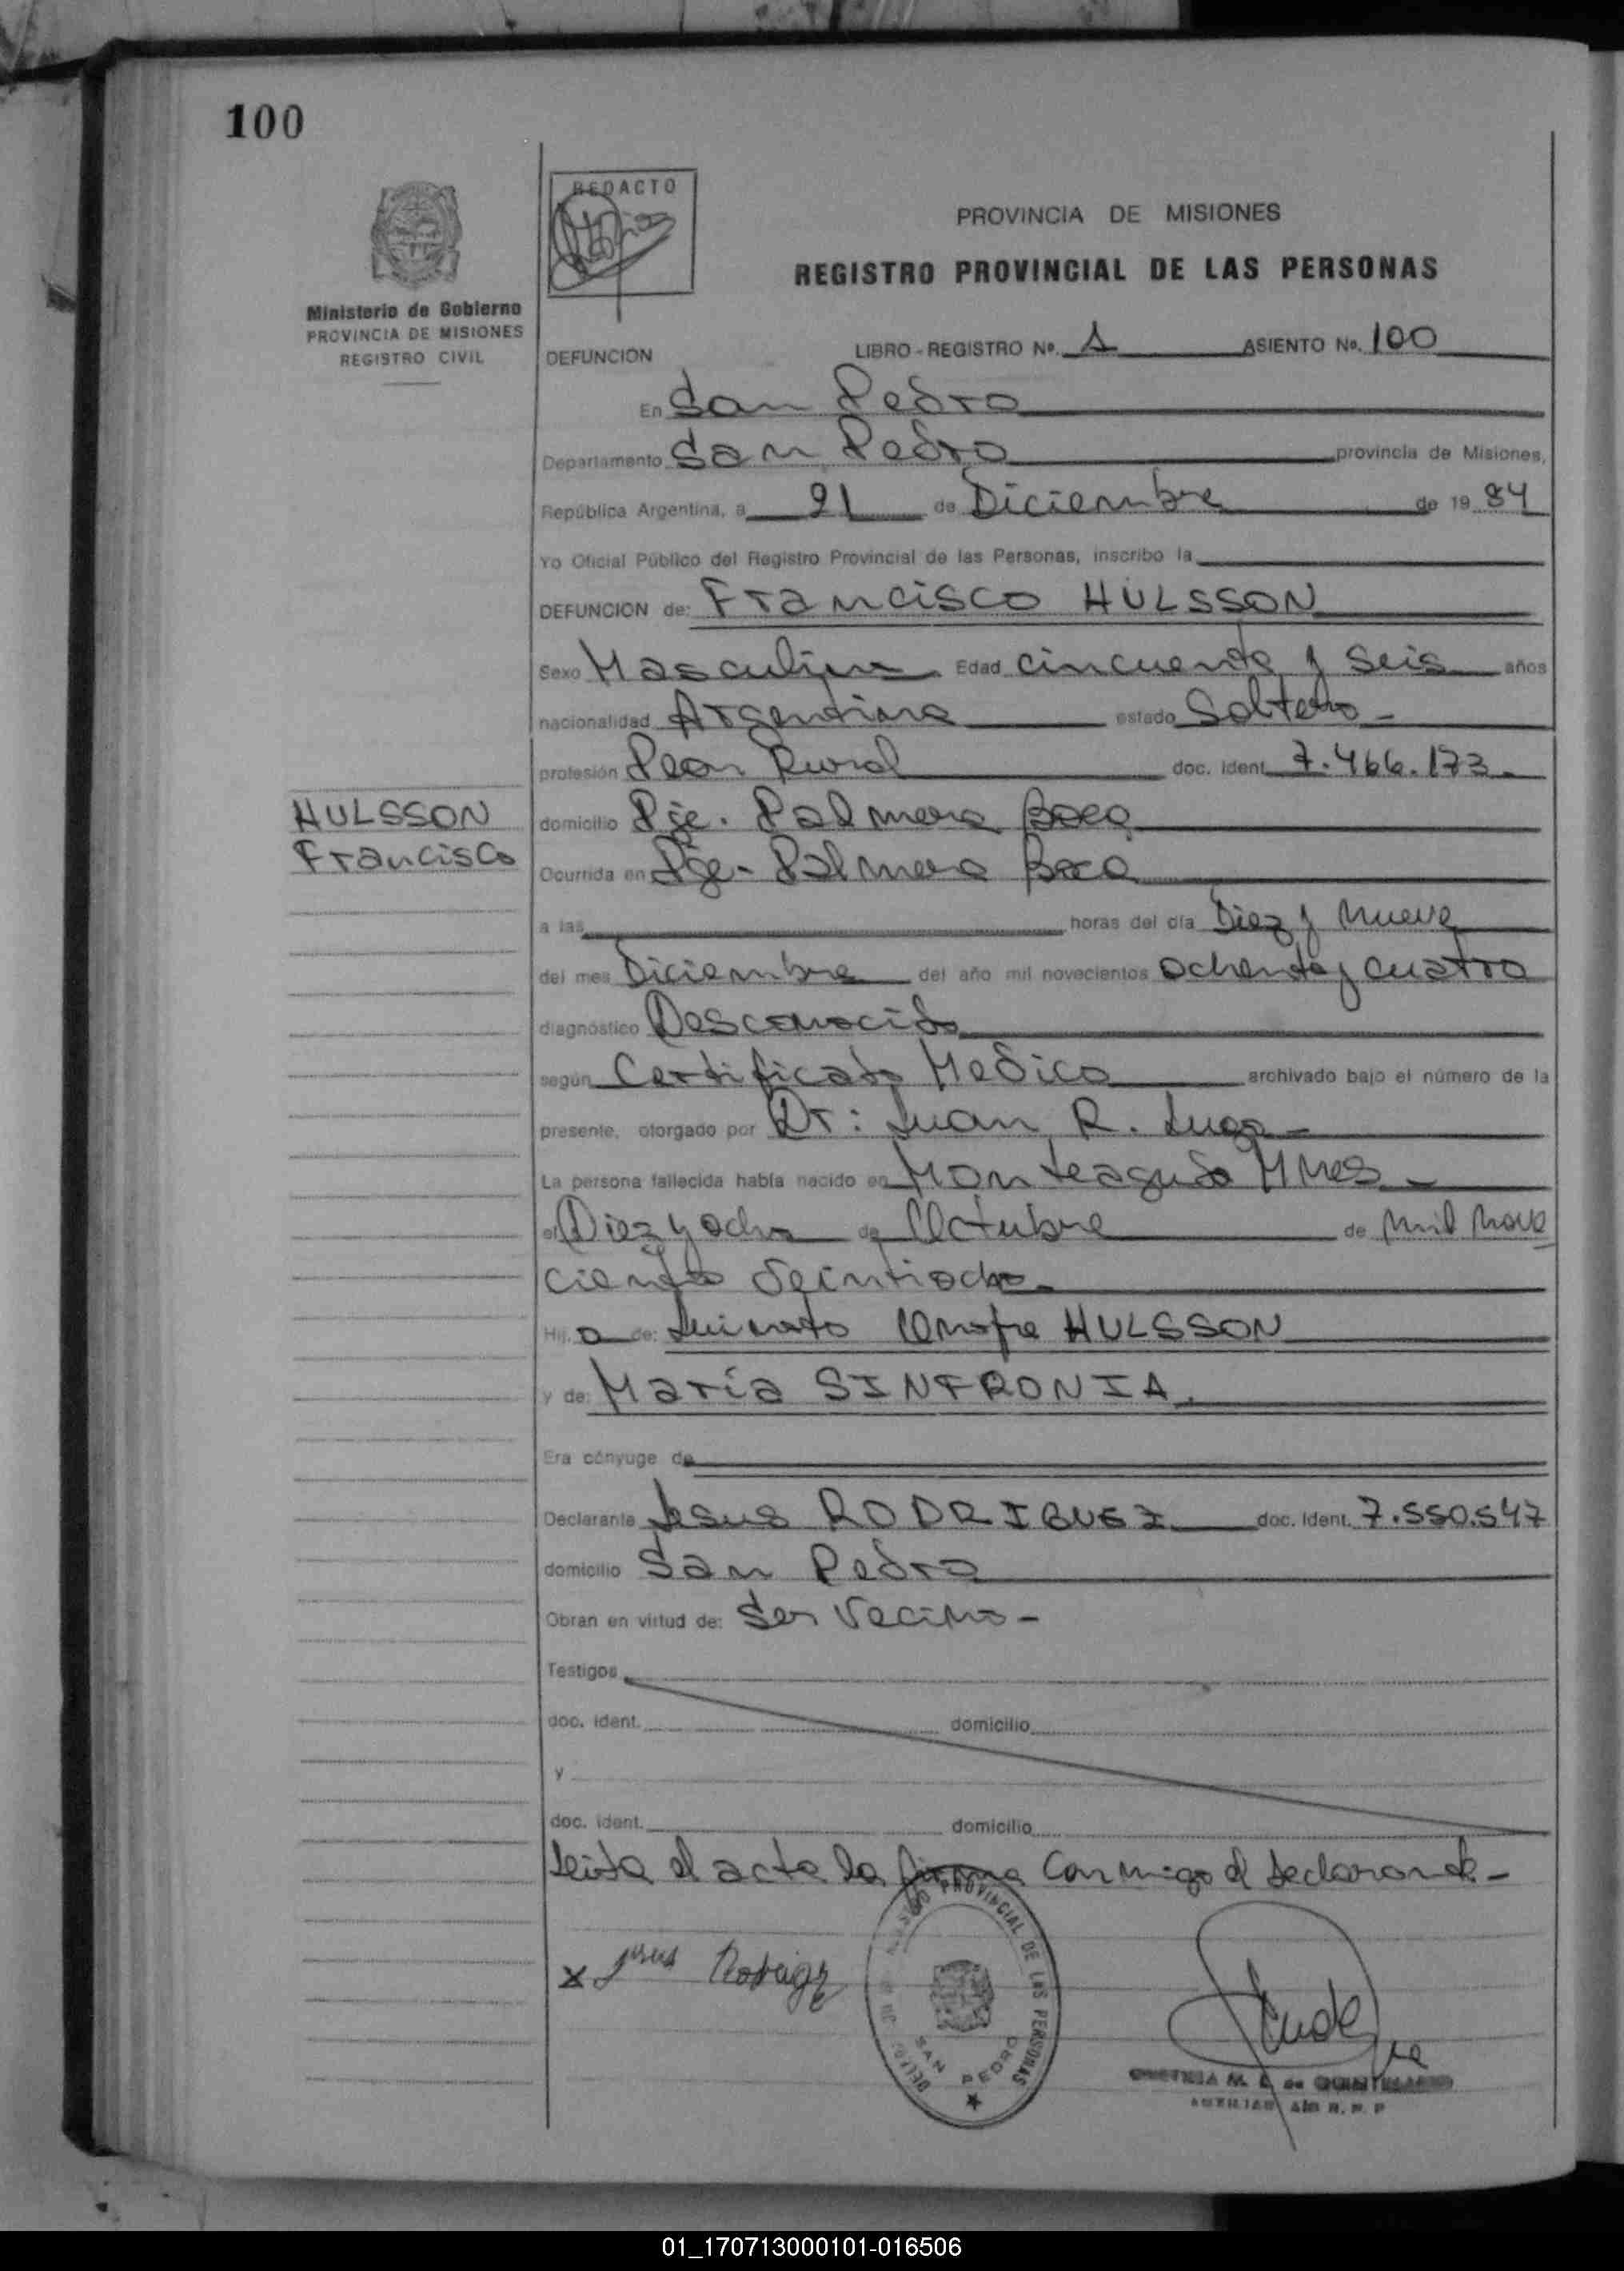 100
REDACTO
PROVINCIA DE MISIONES
REGISTRO PROVINCIAL DE LAS PERSONAS
Ministerio de Gobierno
PROVINCIA DE MISIONES
REGISTRO CIVIL
DEFUNCION LIBRO - REGISTRO Nº. 1 ASIENTO Nº. 100
En San Pedro
Departamento San Pedro provincia de Misiones,
República Argentina, a 21 de Diciembre de 19 84
Yo Oficial Público del Registro Provincial de las Personas, inscribo la
DEFUNCION de: Francisco HULSSON
Sexo Masculino Edad cincuenta y seis años
nacionalidad Argentina estado Soltero -
profesión Peon Rural doc. ident. 7.466.173.
HULSSON
Francisco
domicilio Pje. Palmera Boca
Ocurrida en Pje - Palmera Boca
a las horas del día Diez y nueve
del mes Diciembre del año mil novecientos ochenta y cuatro
diagnóstico Desconocido
según Certificado Medico archivado bajo el número de la
presente, otorgado por Dr: Juan R. Lugo -
La persona fallecida había nacido en Monteagudo Mnes -
el Diez y ocho de Octubre de mil nove
ciento veintiocho -
Hij o de: HULSSON
y de: María SINFRONIA.
Era cónyuge de
Declarante Jesus RODRIGUEZ doc. ident. 7.550.547
domicilio San Pedro
Obran en virtud de: Ser Vecino -
Testigos
doc. ident. domicilio
y
doc. ident. domicilio
Leida el acta la firma conmigo el declarante -
x Jesus
REGISTRO PROVINCIAL DE LAS PERSONAS
SAN PEDRO
01_170713000101-016506